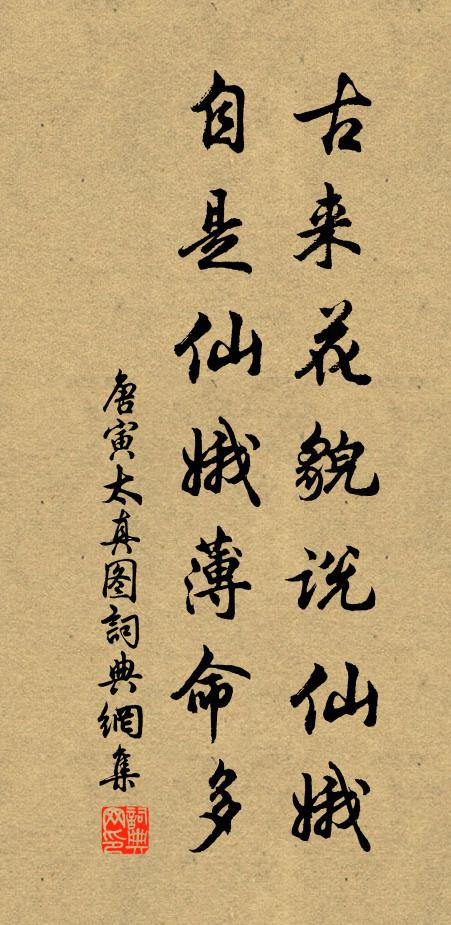 古来花貌说仙娥
自是仙娥薄命多
唐寅太真图詞典網集
詞典网印